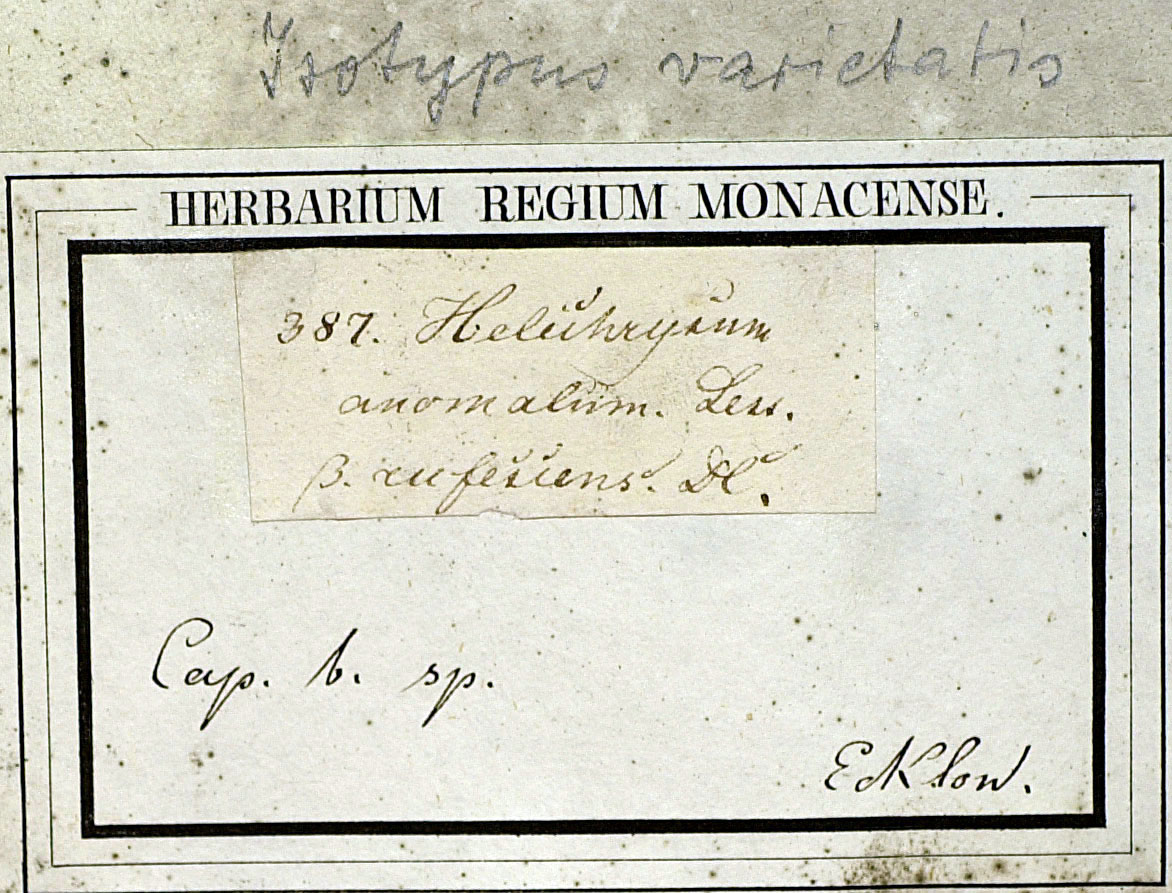 Isotypus varietatis
HERBARIUM REGIUM MONACENSE.
387. Helichrysum
anomalum. Less.
β. rufescens. DC.
Cap. b. sp.
Ecklon.